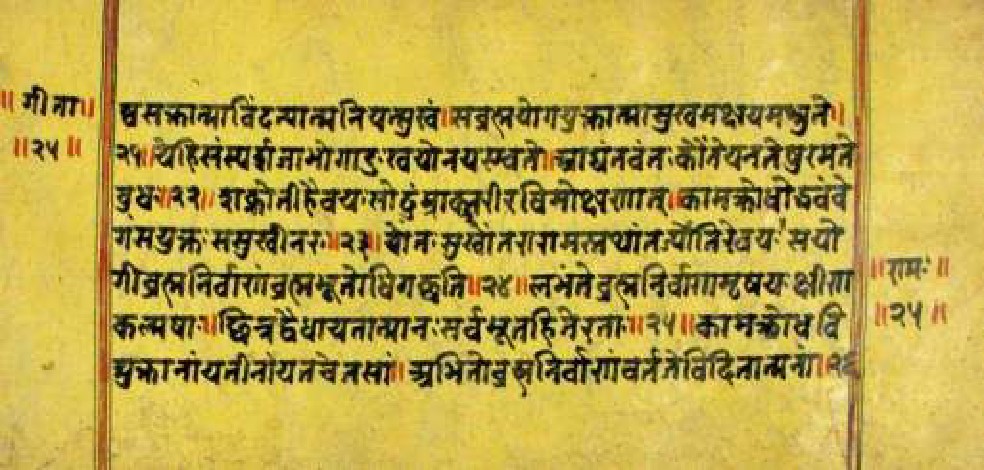 ॥गीता॥
॥२५॥
ष्वसक्तात्माविंदत्यात्मनियत्सुखं॥सब्रह्मयोगयुक्तात्मासुखमक्षयमश्नुते॥
२१॥येहिसंस्पर्शजाभोगादुःखयोनयएवते॥आद्यंतवंतःकौंतेयनतेषुरमते
बुधः॥२२॥शक्नोतीहैवयःसोढुंप्राक्शरीरविमोक्षणात्॥कामक्रोधोद्भवंवे
गंसयुक्तःससुखीनरः॥२३॥योंतःसुखोंतरारामस्तथांतर्ज्योतिरेवयः॥सयो
गीब्रह्मनिर्वाणंब्रह्मभूतोधिगछति॥२४॥लभंतेब्रह्मनिर्वाणमृषयःक्षीण
कल्मषाः॥छिन्नद्वैधायतात्मानःसर्वभूतहितेरताः॥२५॥कामक्रोधवि
युक्तानांयतीनांयतचेतसां॥अभितोब्रह्मनिर्वाणंवर्ततेविदितात्मनां॥२६
॥रामः॥
॥२५॥